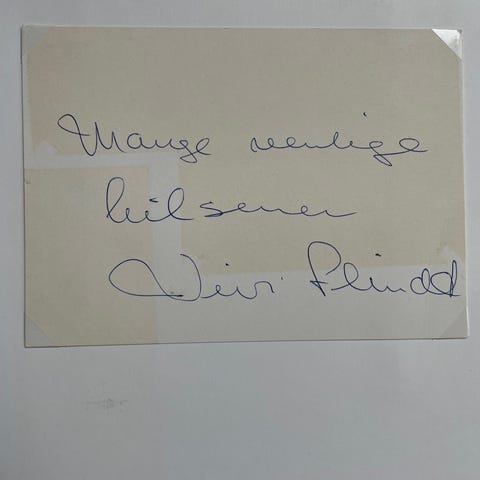 Mange venlige
hilsener
Vivi Flindt